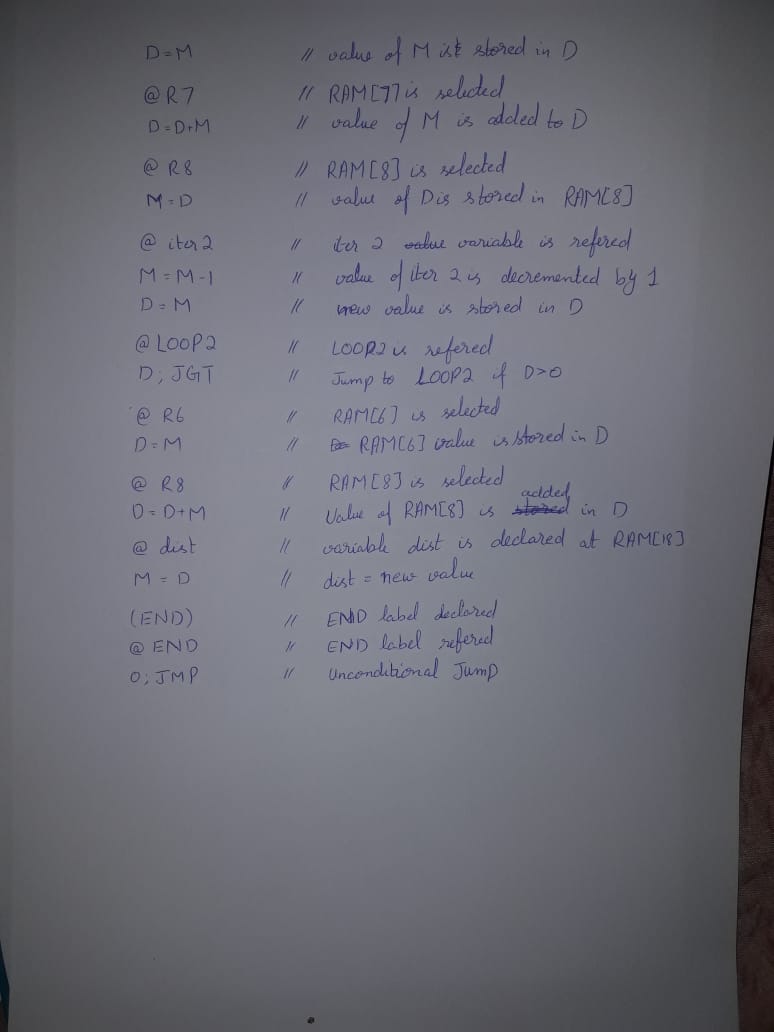 D=M // value of M is stored in D
@R7 // RAM[7] is selected
D=D+M // value of M is added to D
@R8 // RAM[8] is selected
M=D // value of D is stored in RAM[8]
@iter2 // iter 2 value variable is refered
M=M-1 // value of iter 2 is decremented by 1
D=M // new value is stored in D
@LOOP2 // LOOP2 is refered
D; JGT // Jump to LOOP2 if D>0
@R6 // RAM[6] is selected
D=M // RAM[6] value is stored in D
@R8 // RAM[8] is selected
added
D=D+M // Value of RAM[8] is stored in D
@dist // variable dist is declared at RAM[18]
M=D // dist = new value
(END) // END label declared
@END // END label refered
0; JMP // Unconditional Jump